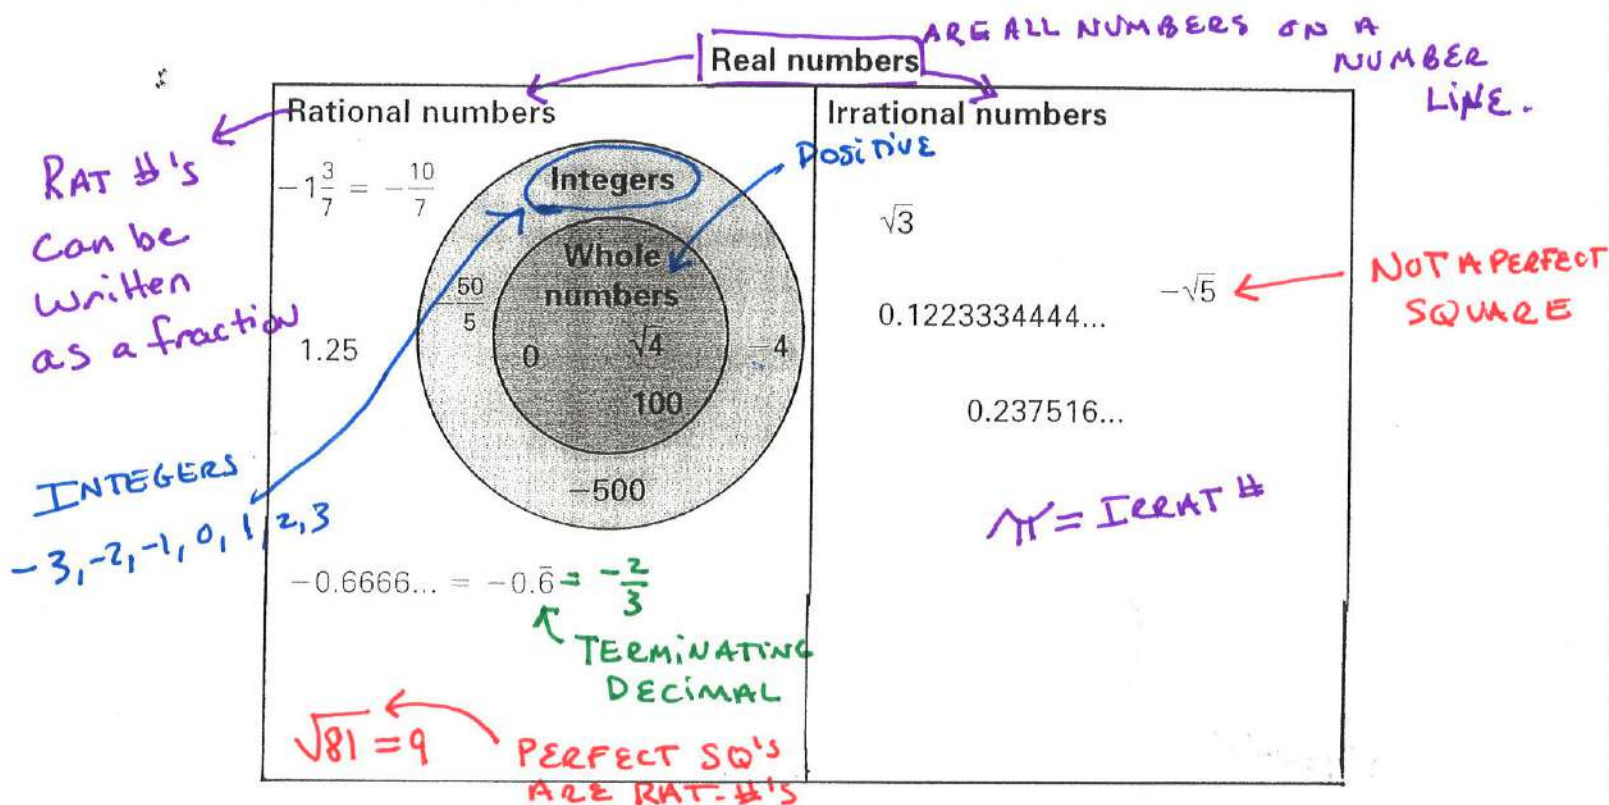 Real numbers
ARE ALL NUMBERS ON A
NUMBER
LINE.
Rational numbers
RAT #'S
can be
written
as a fraction
-1 3/7 = -10/7
Integers
Positive
Whole
numbers
50/5
0
√4
100
-4
-500
1.25
INTEGERS
-3, -2, -1, 0, 1, 2, 3
-0.6666... = -0.6̅ = -2/3
TERMINATING
DECIMAL
√81 = 9
PERFECT SQ'S
ARE RAT. #'S
Irrational numbers
√3
-√5
NOT A PERFECT
SQUARE
0.1223334444...
0.237516...
π = IRRAT #